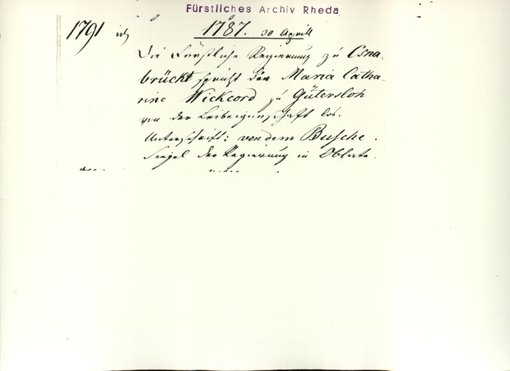 Fürstliches Archiv Rheda
1791
1787. 30 April
Die Fürstliche Regierung zu Osna-
brück spricht die Maria Catha-
rine Wickcord zu Gütersloh
von der Leibeigenschaft los.
Unterschrift: von dem Busche.
Siegel der Regierung in Oblate.